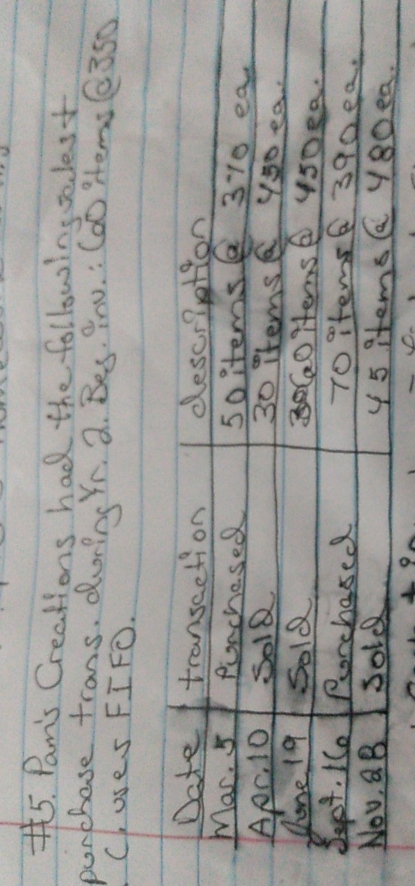 #5. Pam's Creations had the following sales +
purchase trans. during Yr. 2. Beg. inv.: 60 items @ 350
C. uses FIFO.
Date transaction description
Mar. 5 Purchased 50 items @ 370 ea.
Apr. 10 Sold 30 items @ 450 ea.
June 19 Sold 60 items @ 450 ea.
Sept. 16 Purchased 70 items @ 390 ea.
Nov. 28 Sold 45 items @ 480 ea.